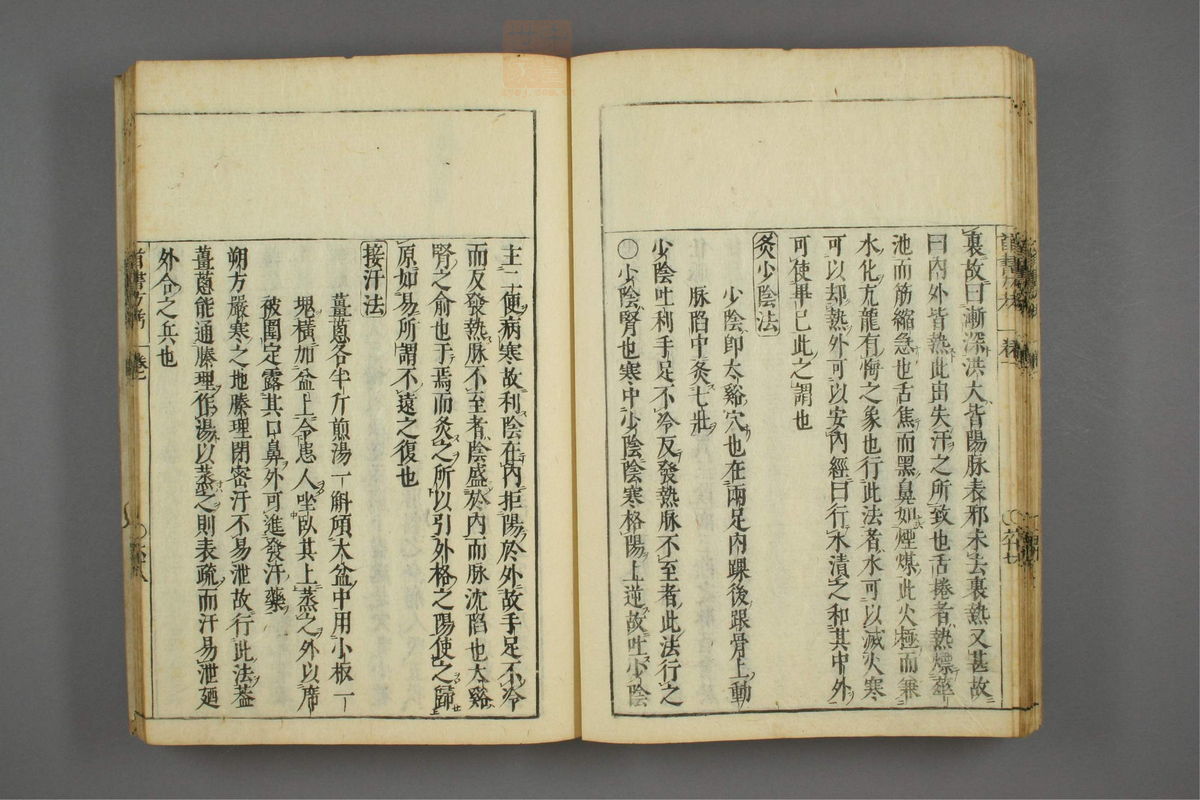 裏故曰漸深洪大皆陽脉表邪未去裏熱又甚故
曰內外皆熱此出失汗之所致也舌捲者熱爍華
池而筋縮急也舌焦而黑鼻如煙煤此火極而兼
水化亢龍有悔之象也行此法者水可以滅火寒
可以却熱外可以安內經曰行水漬之和其中外
可使畢已此之謂也
灸少陰法
少陰即太谿穴也在兩足內踝後跟骨上動
脉陷中灸七壯
少陰吐利手足不冷反發熱脉不至者此法行之
少陰腎也寒中少陰陰寒格陽上逆故吐少陰
主二便病寒故利陰在內拒陽於外故手足不冷
而反發熱脉不至者陰盛於內而脉沈陷也太谿
腎之俞也于焉而灸之所以引外格之陽使之歸
原如易所謂不遠之復也
接汗法
薑蔥各半斤煎湯一斛頃大盆中用小板一
塊橫加盆上令患人坐臥其上蒸之外以席
被圍定露其口鼻外可進發汗藥
朔方嚴寒之地腠理閉密汗不易泄故行此法葢
薑蔥能通腠理作湯以蒸之則表疏而汗易泄廼
外合之兵也